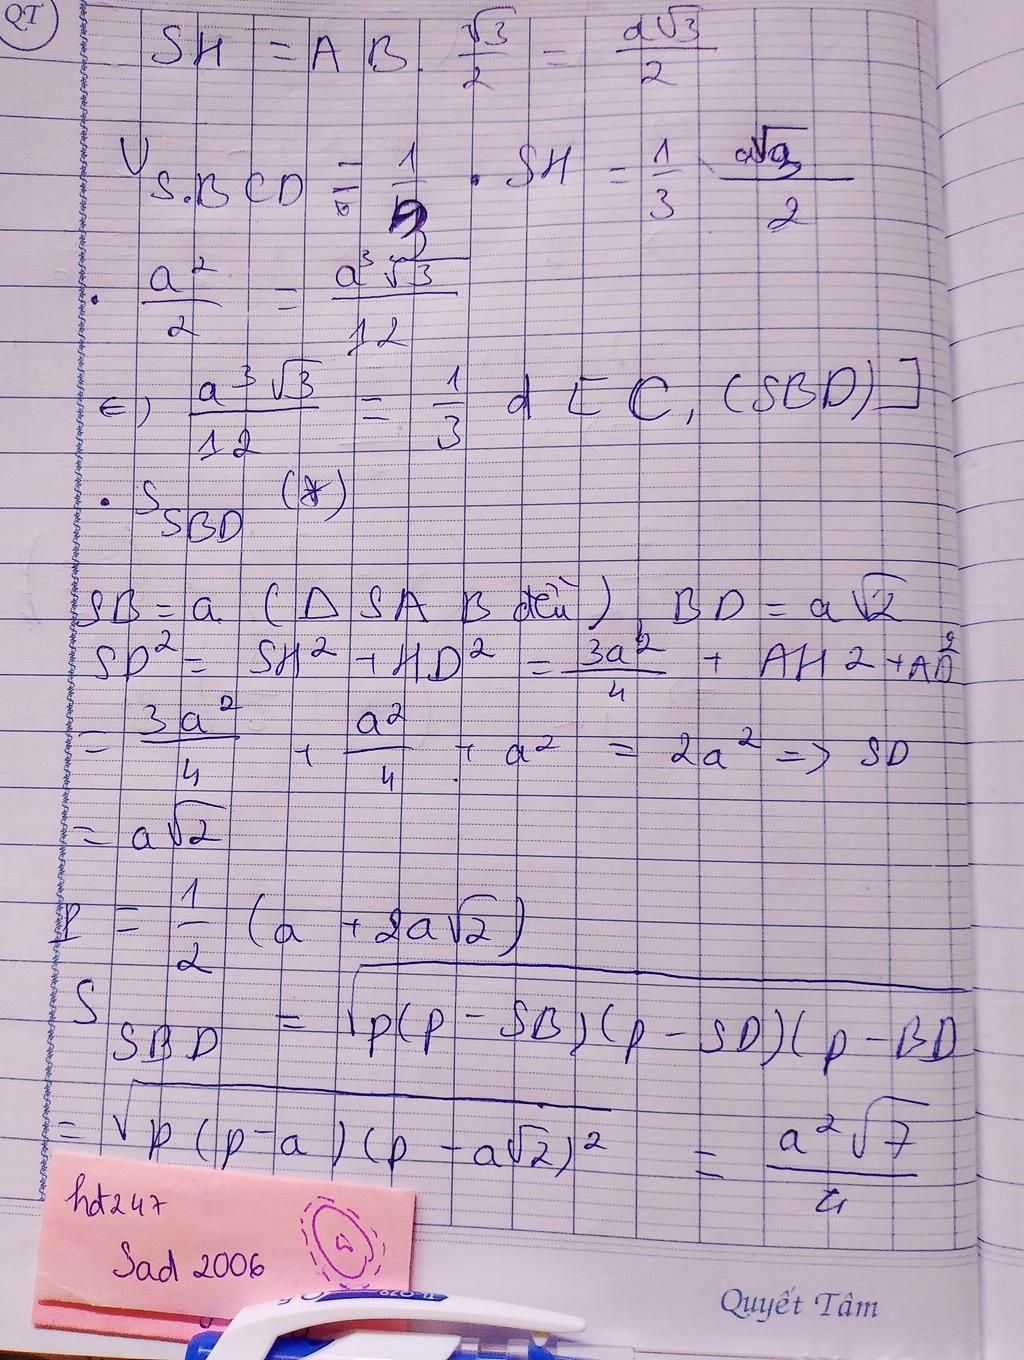 QT
SH = AB. √3/2 = a√3/2
V_{S.BCD} = 1/3 . SH = 1/3 . a√3/2
. a²/2 = a³√3/12
⇔) a³√3/12 = 1/3 d [C, (SBD)]
. S_{SBD} (*)
SB = a (Δ SAB đều), BD = a√2
SD² = SH² + HD² = 3a²/4 + AH2 + AD²
= 3a²/4 + a²/4 + a² = 2a² => SD
= a√2
P = 1/2 (a + 2a√2)
S_{SBD} = √p(p - SB)(p - SD)(p - BD
= √p(p-a)(p - a√2)² = a²√7/4
hd247
Sad 2006
Quyết Tâm